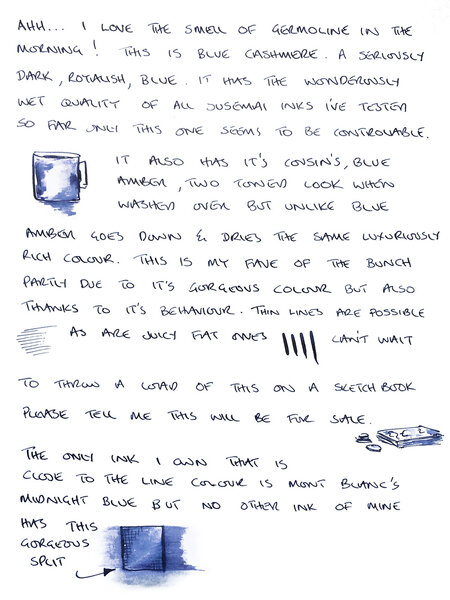 AHH... I LOVE THE SMELL OF GERMOLINE IN THE
MORNING! THIS IS BLUE CASHMERE. A SERIOUSLY
DARK, ROYALISH, BLUE. IT HAS THE WONDEROUSLY
WET QUALITY OF ALL SUSEMAI INKS I'VE TESTED
SO FAR ONLY THIS ONE SEEMS TO BE CONTROLABLE.
IT ALSO HAS IT'S COUSIN'S, BLUE
AMBER, TWO TONED LOOK WHEN
WASHED OVER BUT UNLIKE BLUE
AMBER GOES DOWN & DRIES THE SAME LUXURIOUSLY
RICH COLOUR. THIS IS MY FAVE OF THE BUNCH
PARTLY DUE TO IT'S GORGEOUS COLOUR BUT ALSO
THANKS TO IT'S BEHAVIOUR. THIN LINES ARE POSSIBLE
AS ARE JUICY FAT ONES CAN'T WAIT
TO THROW A LOAD OF THIS ON A SKETCHBOOK
PLEASE TELL ME THIS WILL BE FOR SALE.
THE ONLY INK I OWN THAT IS
CLOSE TO THE LINE COLOUR IS MONT BLANC'S
MIDNIGHT BLUE BUT NO OTHER INK OF MINE
HAS THIS
GORGEOUS
SPLIT